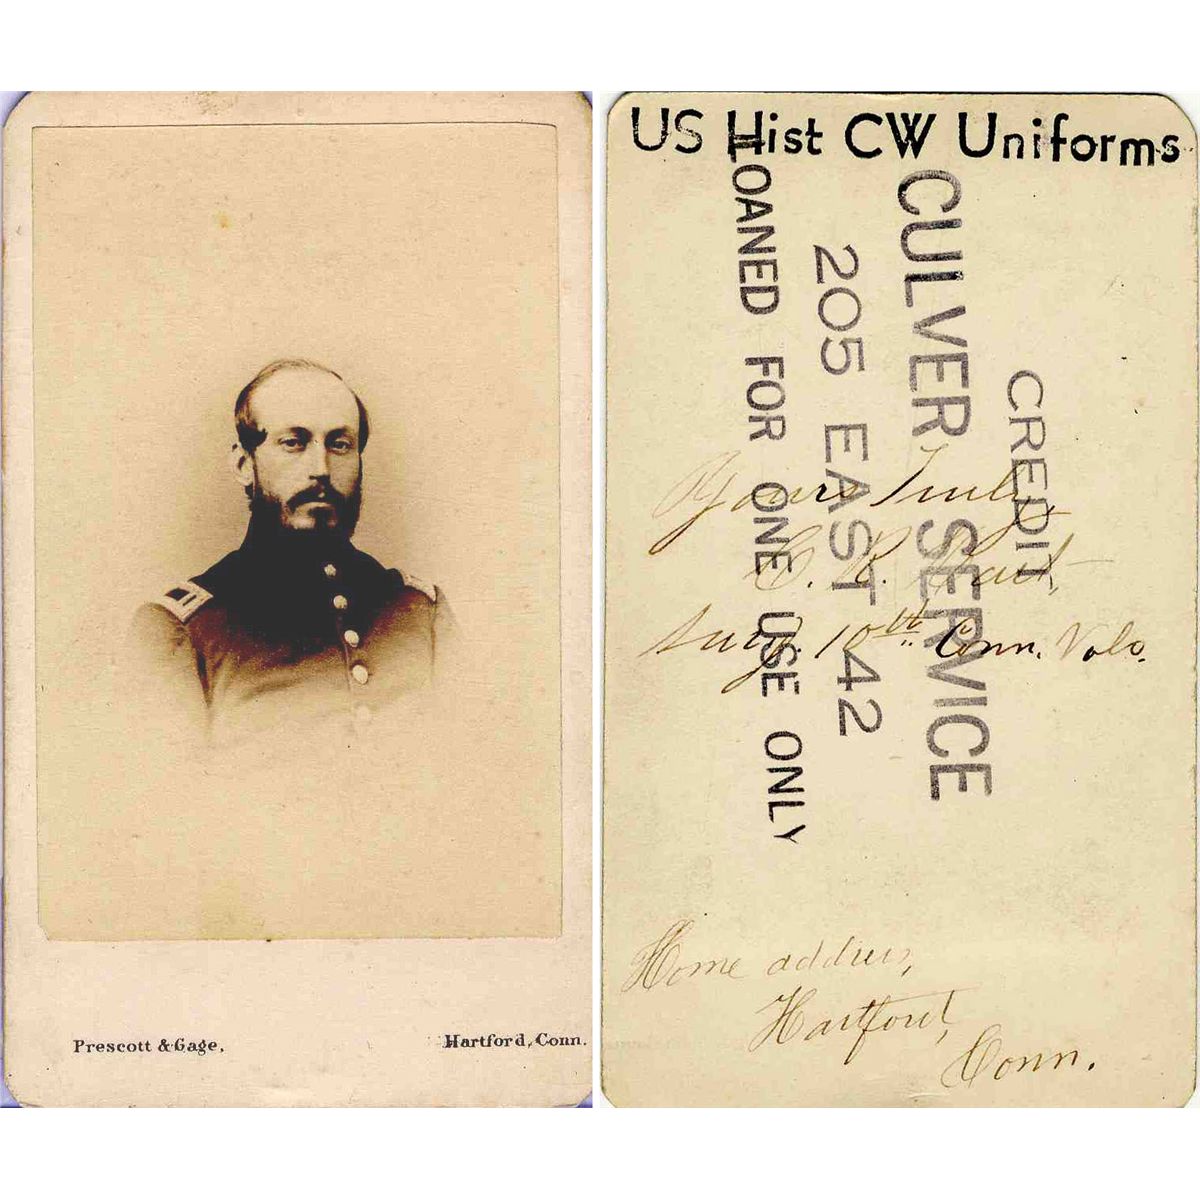 Prescott & Gage,
Hartford, Conn.
US Hist CW Uniforms
CREDIT
CULVER SERVICE
205 EAST 42
LOANED FOR ONE USE ONLY
Yours Truly
C. R. Hart
Surg. 10th Conn. Vols.
Home address,
Hartford,
Conn.